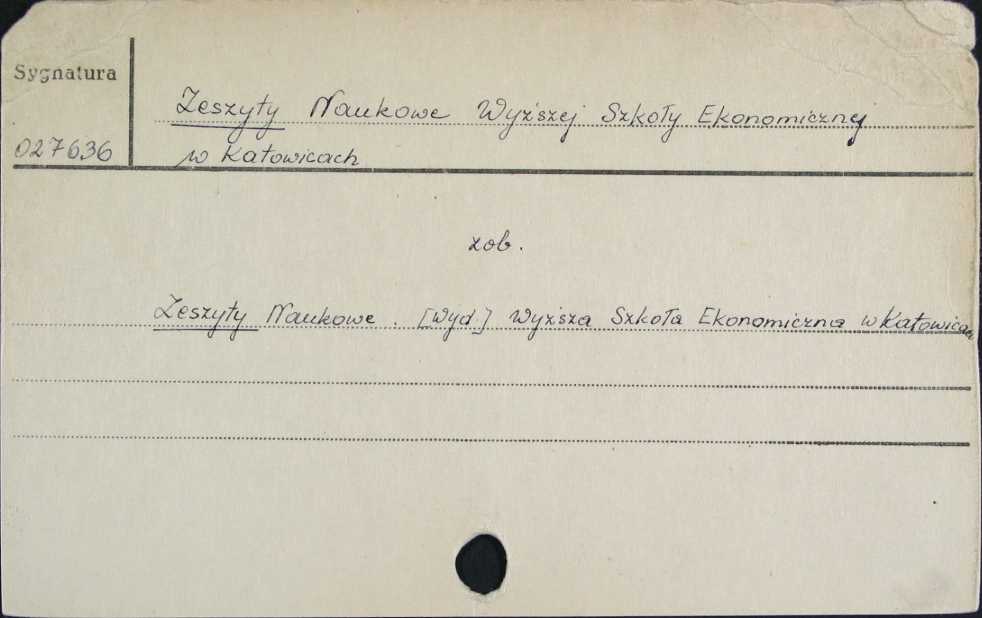 Sygnatura
Zeszyty Naukowe Wyższej Szkoły Ekonomicznej
027636
w Katowicach
zob.
Zeszyty Naukowe. [Wyd.] Wyższa Szkoła Ekonomiczna w Katowicach